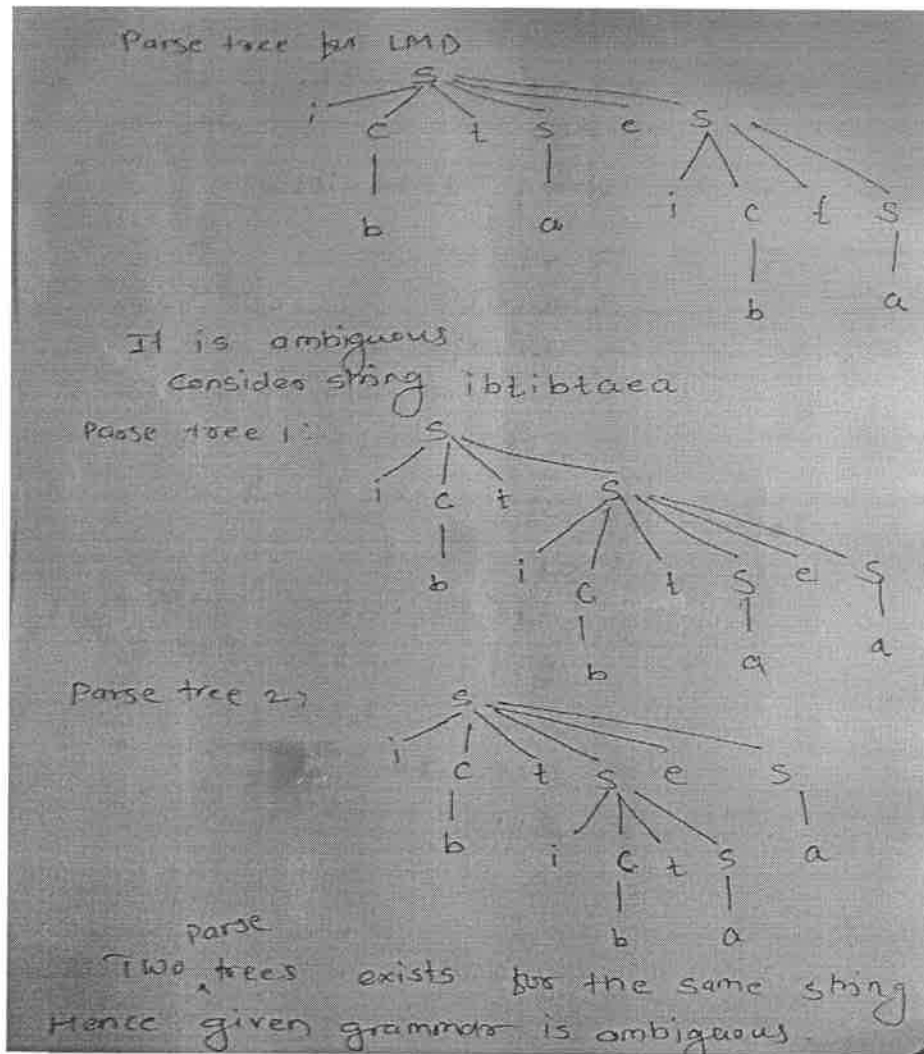 Parse tree for LMD
S
i C t S e S
b a i C t S
b a
It is ambiguous
consider string ibtibtaea
Parse tree 1:
S
i C t S
b i C t S e S
b a a
Parse tree 2;
S
i C t S e S
b i C t S a
b a
parse
Two ‸ trees exists for the same string
Hence given grammar is ambiguous.